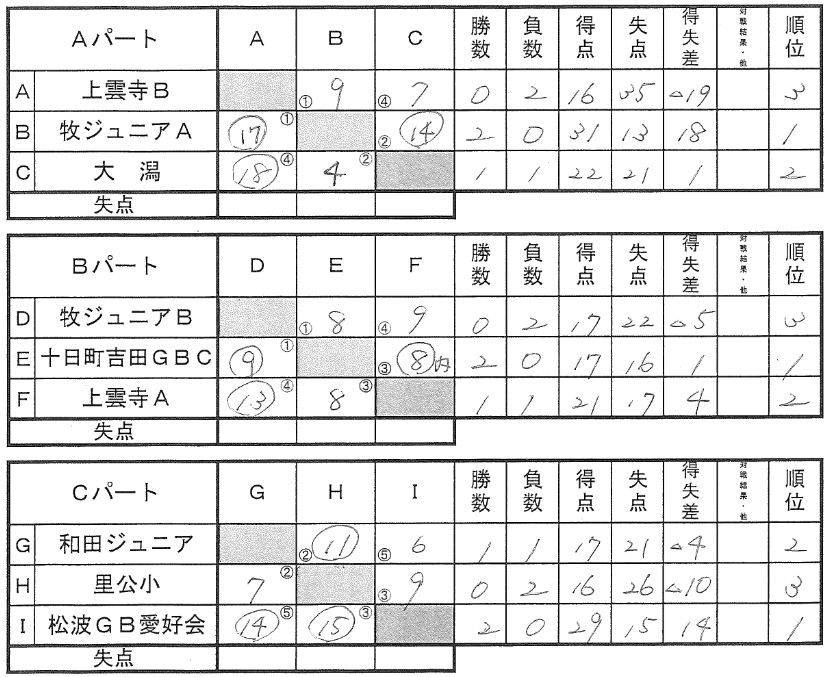 Aパート A B C 勝数 負数 得点 失点 得失差 対戦結果・他 順位
A 上雲寺B ① 9 ④ 7 0 2 16 35 △19 3
B 牧ジュニアA 17 ① ② 14 2 0 31 13 18 1
C 大潟 18 ④ 4 ② 1 1 22 21 1 2
失点
Bパート D E F 勝数 負数 得点 失点 得失差 対戦結果・他 順位
D 牧ジュニアB ① 8 ④ 9 0 2 17 22 △5 3
E 十日町吉田GBC 9 ① ③ 8内 2 0 17 16 1 1
F 上雲寺A 13 ④ 8 ③ 1 1 21 17 4 2
失点
Cパート G H I 勝数 負数 得点 失点 得失差 対戦結果・他 順位
G 和田ジュニア ② 11 ⑤ 6 1 1 17 21 △4 2
H 里公小 7 ② ③ 9 0 2 16 26 △10 3
I 松波GB愛好会 14 ⑤ 15 ③ 2 0 29 15 14 1
失点